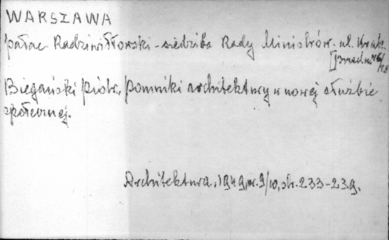 WARSZAWA
pałac Radziwiłłowski - siedziba Rady Ministrów. ul. Krak.
Przedm. 46/48
Biegański Piotr, Pomniki architektury w nowej służbie
społecznej.
Architektura, 1949, nr. 9/10, str. 233-239.